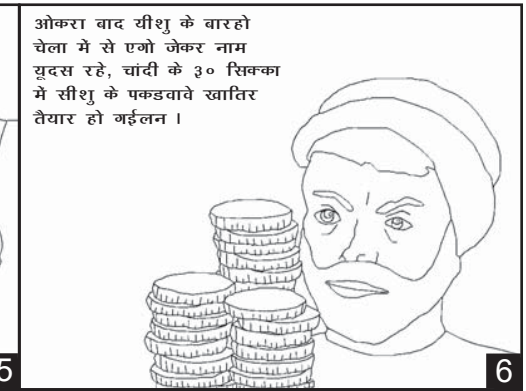 ओकरा बाद यीशु के बारहो
चेला में से एगो जेकर नाम
यूदस रहे, चांदी के ३० सिक्का
में सीशु के पकडवावे खातिर
तैयार हो गईलन ।
5
6